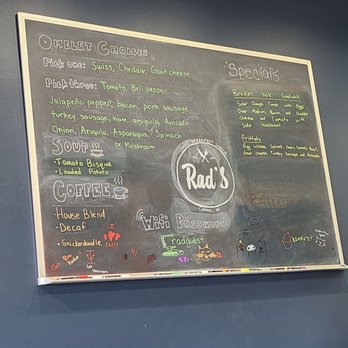 Omelet Choices
Pick one: Swiss, Cheddar, Goat cheese
Pick three: Tomato, Bell pepper
Jalapeño pepper, bacon, pork sausage
turkey sausage, ham, arugula, Avocado
Onion, Arugula, Asparagus, Spinach
or Mushroom
Soup
• Tomato Bisque
• Loaded Potato
Coffee
• House Blend
• Decaf
• Snickerdoodle
Rad's
Wifi Password
radquest
Specials
Broken Yolk Sandwich
Sour Dough Toast with Eggs
Over Medium, Bacon, and Cheddar
Cheese and Tomato with
Side
Frittata
Egg whites, Spinach, Cherry Tomato,
Goat cheese, Turkey Sausage and Avocado